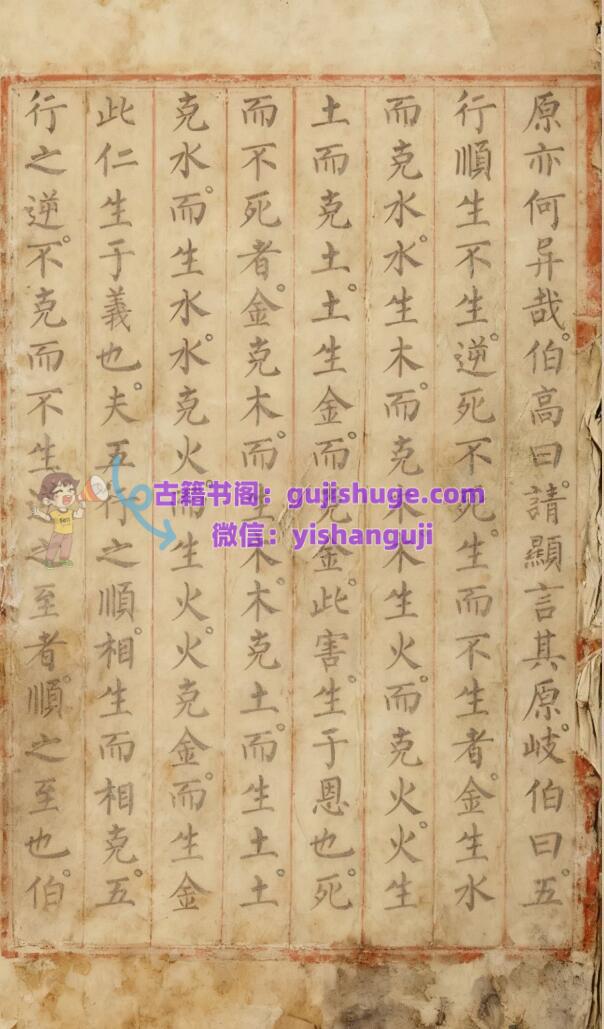 原亦何异哉。伯高曰。請顯言其原。岐伯曰。五
行順生不生。逆死不死。生而不生者。金生水
而克水。水生木而克木木生火。而克火。火生
土而克土。土生金而。克金。此害生于恩也。死
而不死者。金克木而。生木。木克土。而生土。土
克水。而生水水。克火。而生火。火克金。而生金
此仁生于義也。夫五行之順。相生而相克。五
行之逆。不克而不生。逆之至者。順之至也。伯
古籍书阁：gujishuge.com
微信：yishanguji